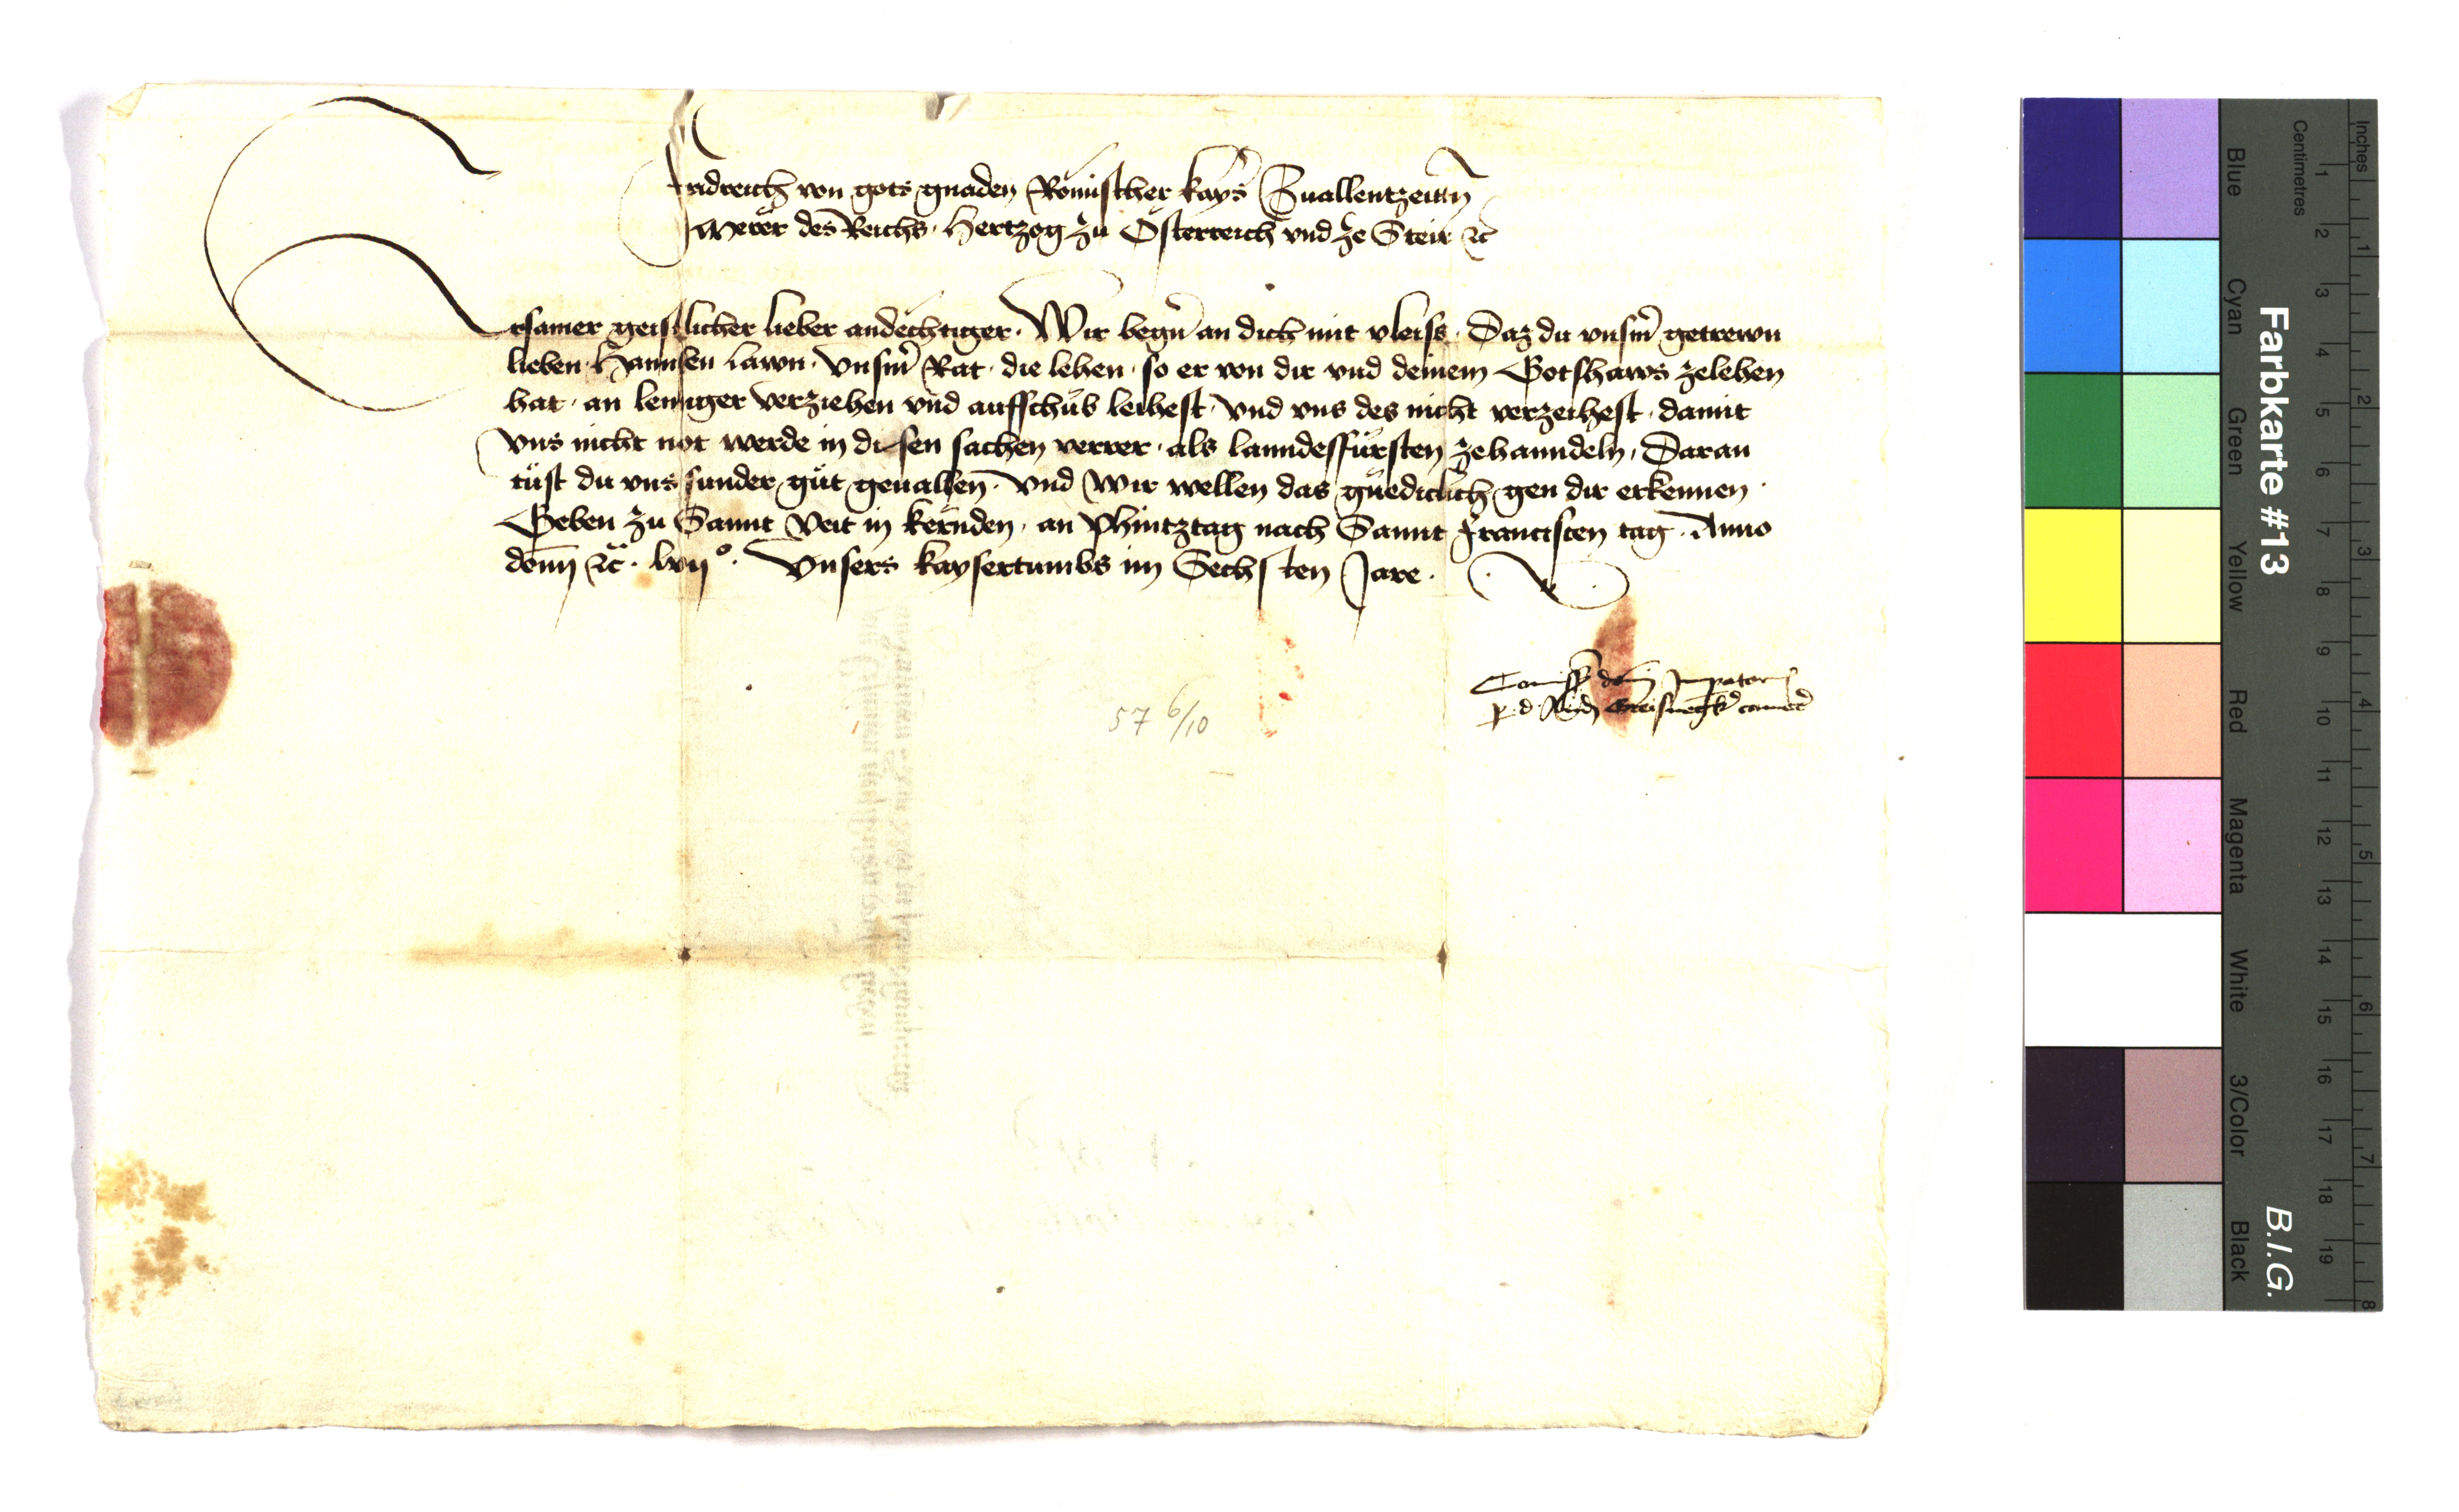 Fridreich von gots gnaden Römischer kays̄ Zuallentzeitn̄
Merer des Reichs · Hertzog zu Österreich vnd ze Steir ꝛc̄
Ersamer geistlicher lieber andechtiger · Wir begn̄ an dich mit vleiss · Daz du vnsm̄ getrewn
lieben · Hannsen lawn · vnsm̄ Rat · die lehen · so er von dir vnd deinem Gotshaws zelehen
hat · an lennger verziehen vnd auffschub leihest · vnd vns des nicht verzeihest · damit
vns nicht not werde in disen sachen verrer · als lanndesfürsten zehanndeln · Daran
tüst du vns sunder güt geuallen · vnd Wir wellen das gnediclich gen dir erkennen ·
Geben zu Sannt Veit in kernden · an Phintztag nach Sannt Francisten tag · Anno
dom̄ ꝛc̄ · lvijº · Vnsers kaysertumbs im Sechsten Jare ·
Com̄issio dom̄ Imp̄atoris
p · d · Greisnegk̄ camer̄
57 6/10
Farbkarte #13
B.I.G.
Inches
Centimetres
1 2 3 4 5 6 7 8 9 10 11 12 13 14 15 16 17 18 19
1 2 3 4 5 6 7 8
Blue
Cyan
Green
Yellow
Red
Magenta
White
3/Color
Black